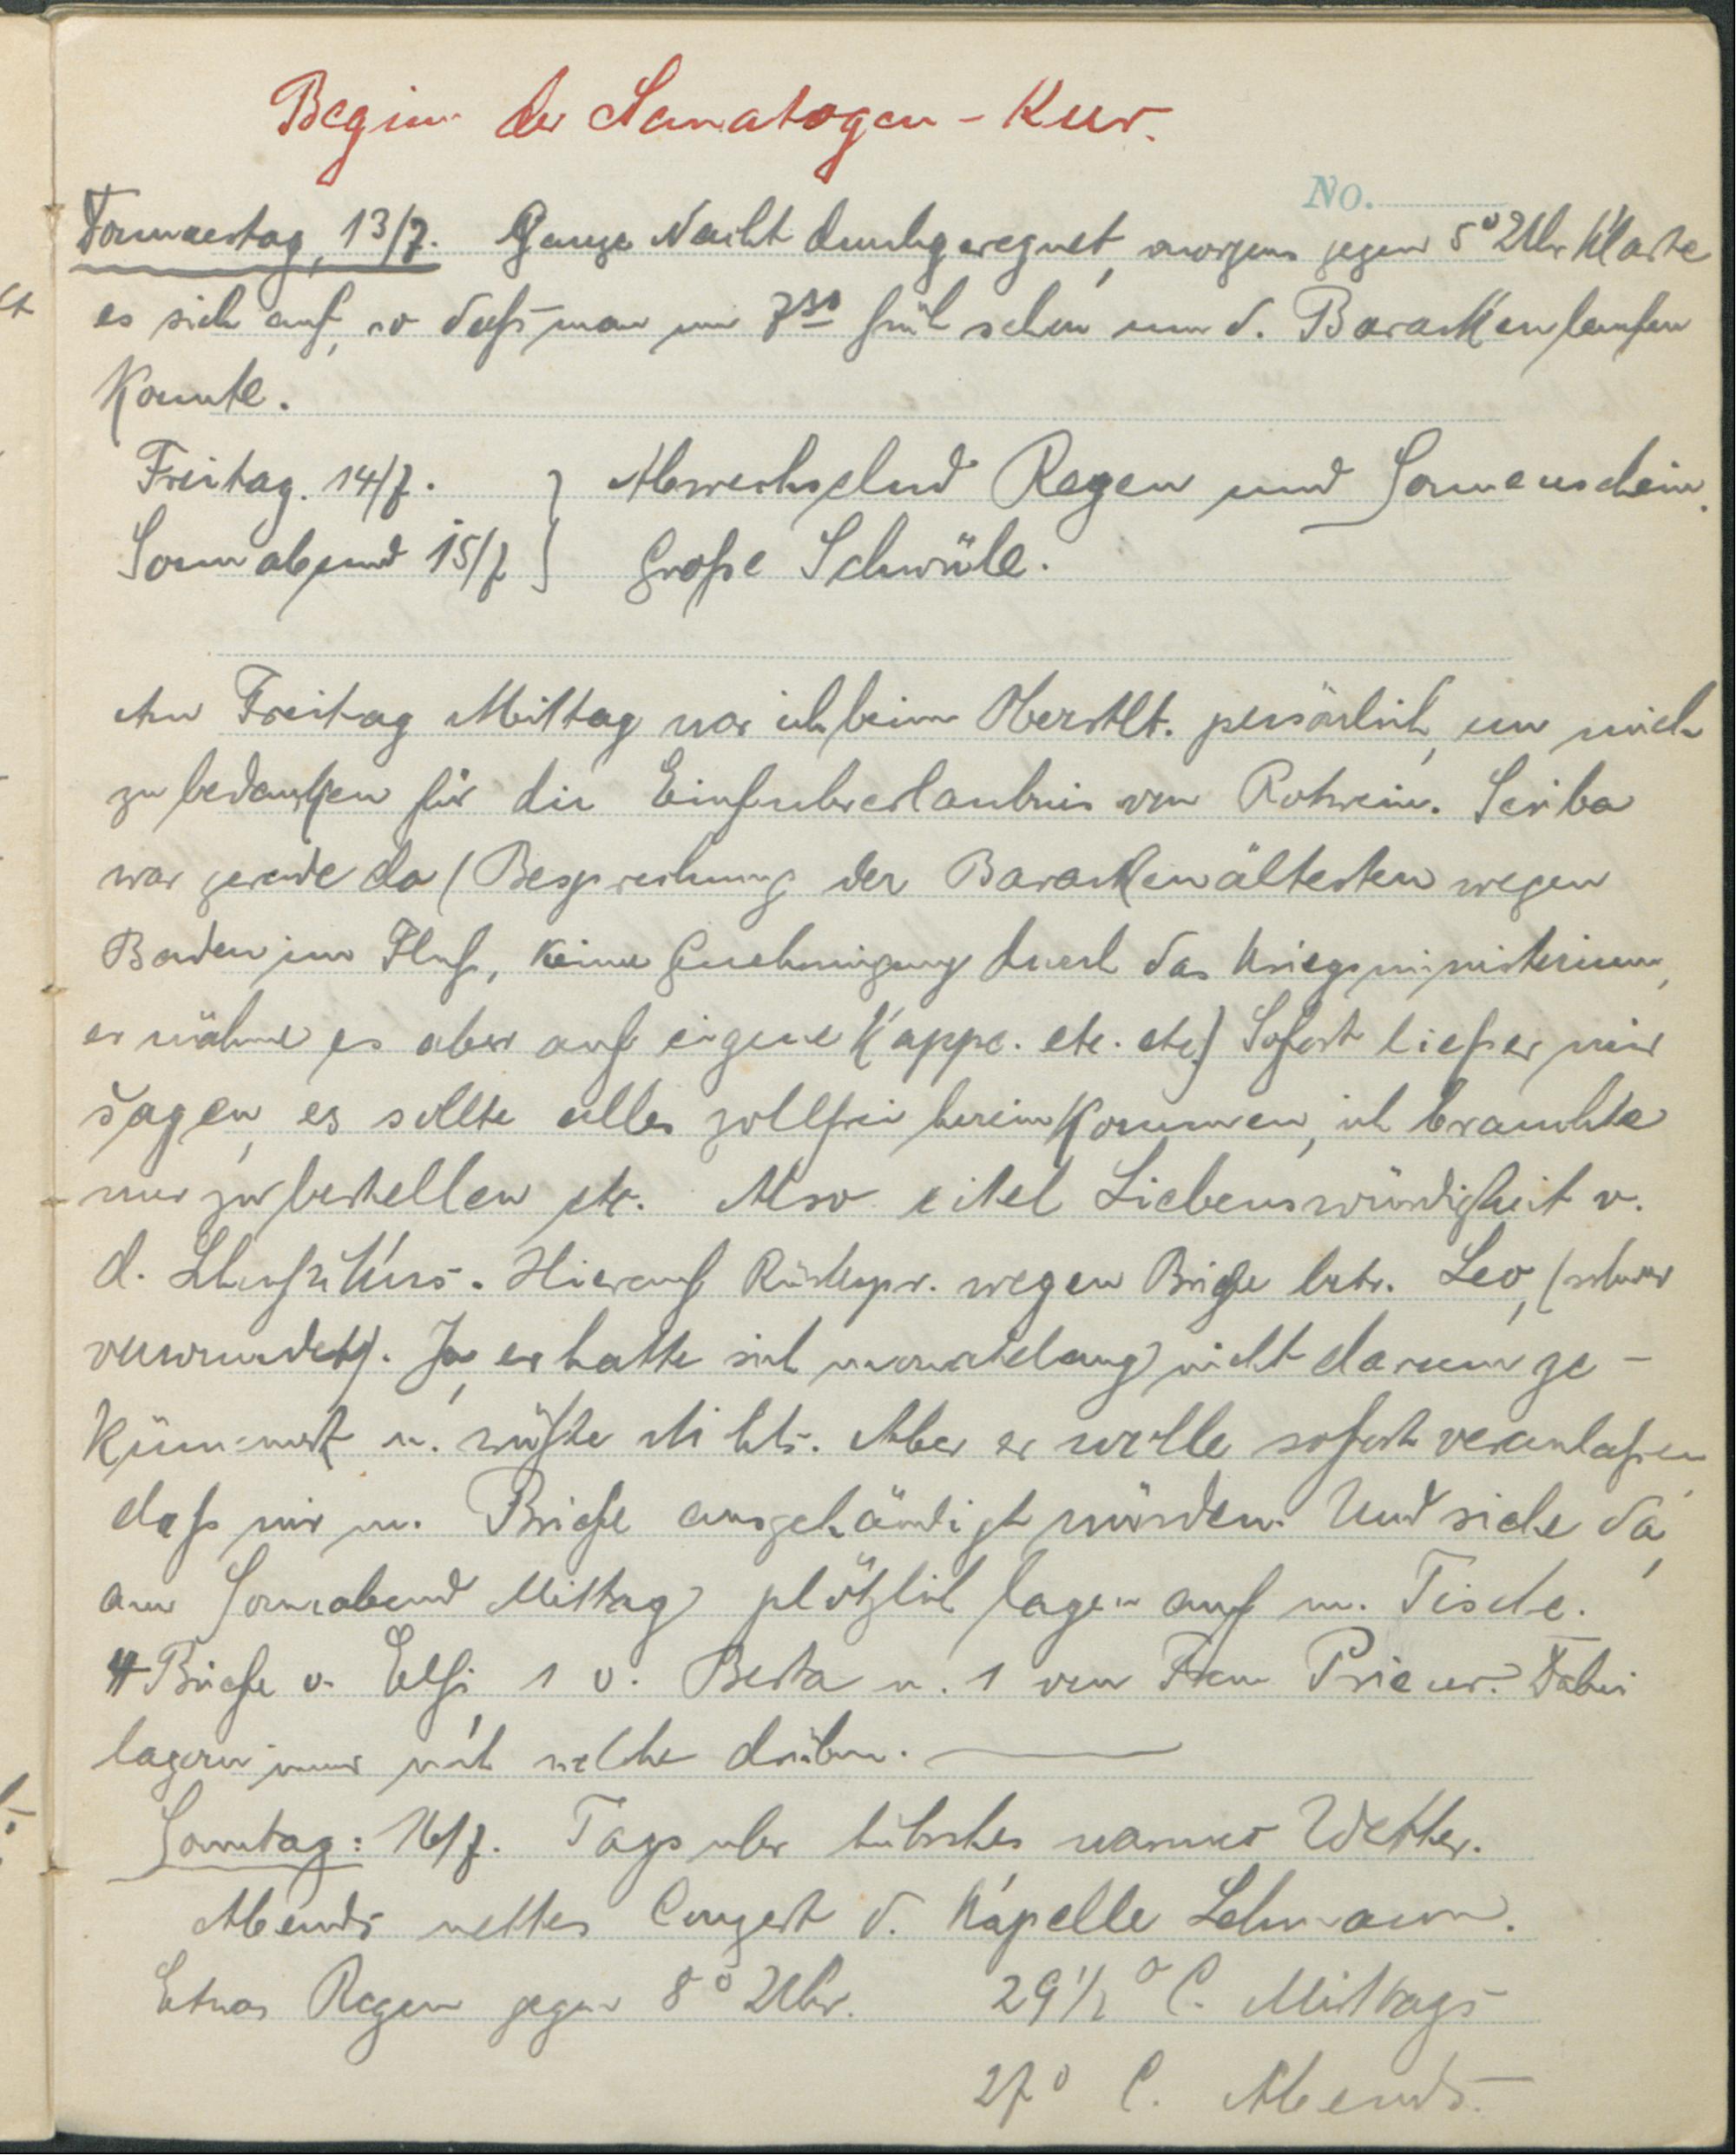 Beginn der Sanatogen-Kur.
No.
Donnerstag, 13/7. Ganze Nacht durchgeregnet, morgens gegen 5º Uhr klarte
es sich auf, so daß man um 7³⁰ früh schon um d. Baracken laufen
konnte.
Freitag. 14/7. } Abwechselnd Regen und Sonnenschein.
Sonnabend 15/7 } Große Schwüle.
Am Freitag Mittag war ich beim Oberstlt. persönlich, um mich
zu bedanken für die Einfuhrerlaubnis von Rotwein. Scriba
war gerade da (Besprechung der Barackenältesten wegen
Baden im Fluß, keine Genehmigung durch das Kriegsministerium,
er nähme es aber auf eigene Kappe. etc. etc.) Sofort ließ er mir
sagen, es sollte alles zollfrei hereinkommen, ich brauchte
nur zu bestellen etc. Also eitel Liebenswürdigkeit v.
d. Hierauf Rückspr. wegen Briefe betr. Leo, (schwer
verwundet). Ja, er hatte sich monatelang nicht darum ge-
kümmert u. wüßte nichts. Aber er wolle sofort veranlaßen
daß mir m. Briefe ausgehändigt würden. Und siehe da,
am Sonnabend Mittag plötzlich lagen auf m. Tische.
4 Briefe v. Elsi, 1 v. Berta u. 1 von Frau Prieur. Dabei
lagern immer noch welche drüben.
Sonntag: 16/7. Tags über hübsches warmes Wetter.
Abends nettes Conzert d. Kapelle Lehmann.
Etwas Regen gegen 8º Uhr. 29½ º C. Mittags
27º C. Abends.